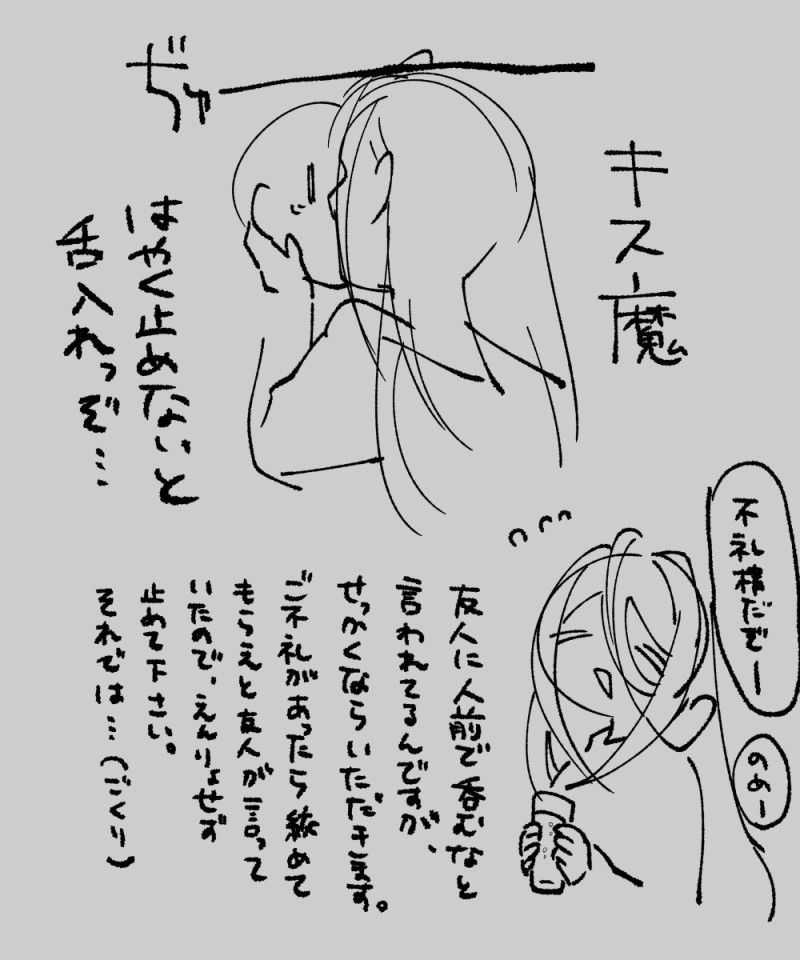 キス魔
ぢゅ
はやく止めないと
舌入れっぞ…
不礼様だぞー
のめー
友人に人前で呑むなと
言われてるんですが、
せっかくならいただきます。
ご不礼があったら絞めて
もらえと友人が言って
いたので、えんりょせず
止めて下さい。
それでは…(ごくり)